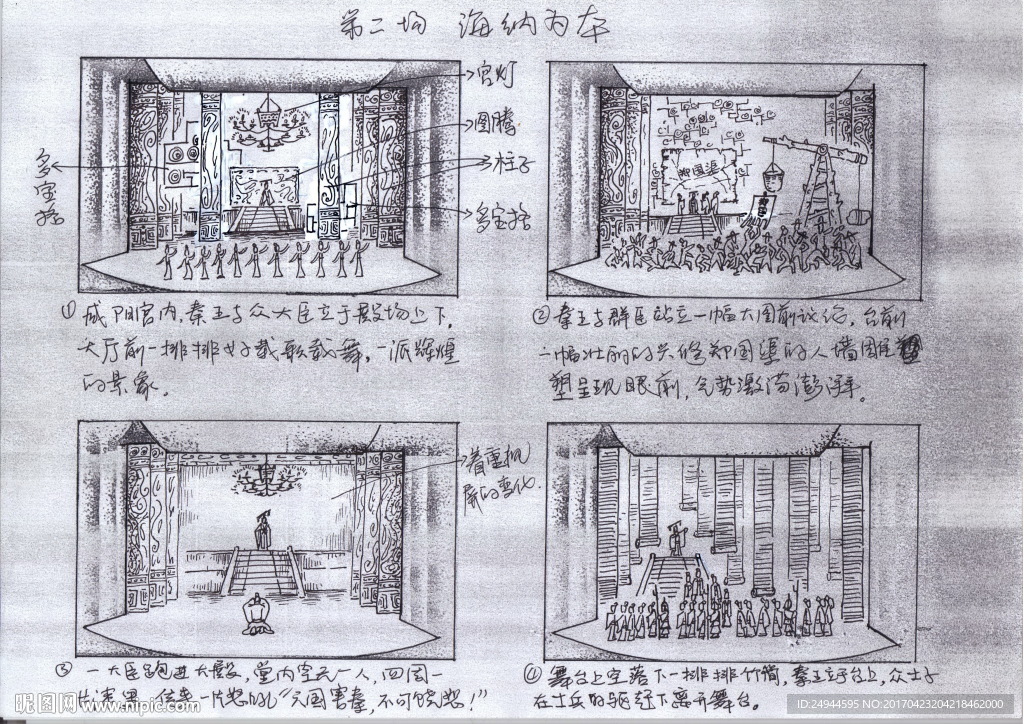 第二场 海纳为本
宫灯
图腾
柱子
多宝格
多宝格
①咸阳宫内，秦王与众大臣立于殿场上下，
大厅前一排排女子载歌载舞，一派辉煌
的景象。
郑国渠
②秦王与群臣站立一幅大图前议论，台前
一幅壮丽的关修郑国渠的人墙雕
塑呈现眼前，气势激荡澎湃。
着重机
屏的变化.
③一大臣跑进大殿，堂内空无一人，四周一
片 一片怒吼“六国害秦，不可饶恕！”
④舞台上空落下一排排竹简，秦王立于台上，众士子
在士兵的驱赶下离开舞台。
昵图网
www.nipic.com
ID:24944595 NO:20170423204218462000